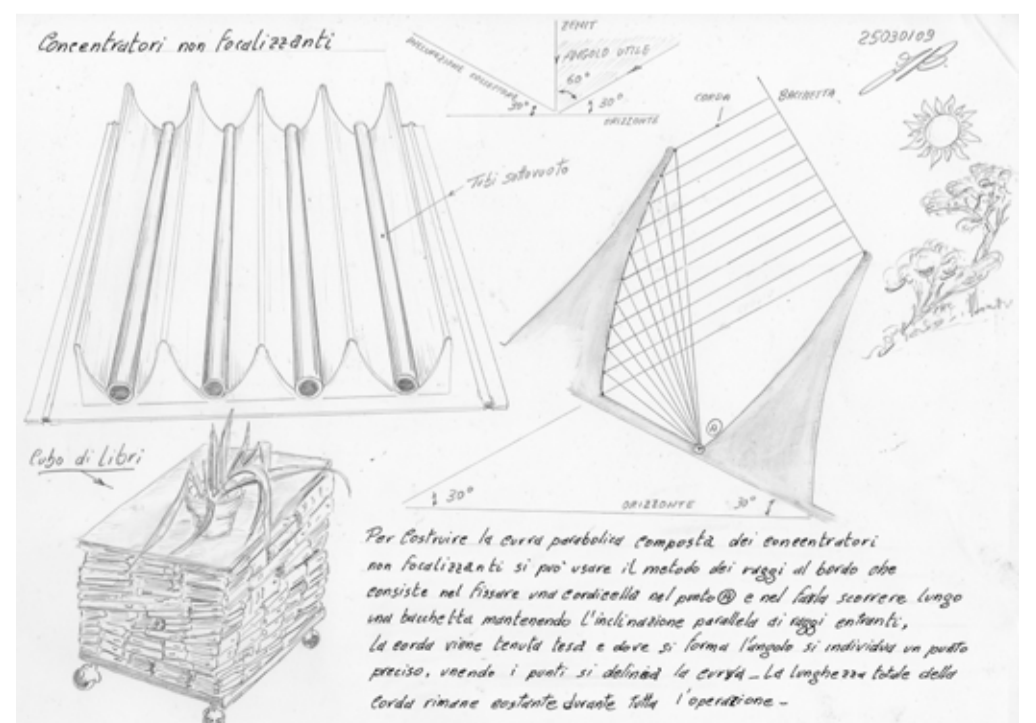 Concentratori non focalizzanti
ZENIT
ANGOLO UTILE
60°
INCLINAZIONE COLLETTORE
30°
30°
ORIZZONTE
25030109
CORDA
BACCHETTA
Tubi sottovuoto
A
Cubo di Libri
30°
ORIZZONTE
30°
Per Costruire la curva parabolica composta dei concentratori
non focalizzanti si può usare il metodo dei raggi al bordo che
consiste nel fissare una cordicella nel punto A e nel farla scorrere lungo
una bacchetta mantenendo l'inclinazione parallela ai raggi entranti,
La corda viene tenuta tesa e dove si forma l'angolo si individua un punto
preciso, unendo i punti si delinea la curva_ La lunghezza totale della
corda rimane costante durante tutta l'operazione_